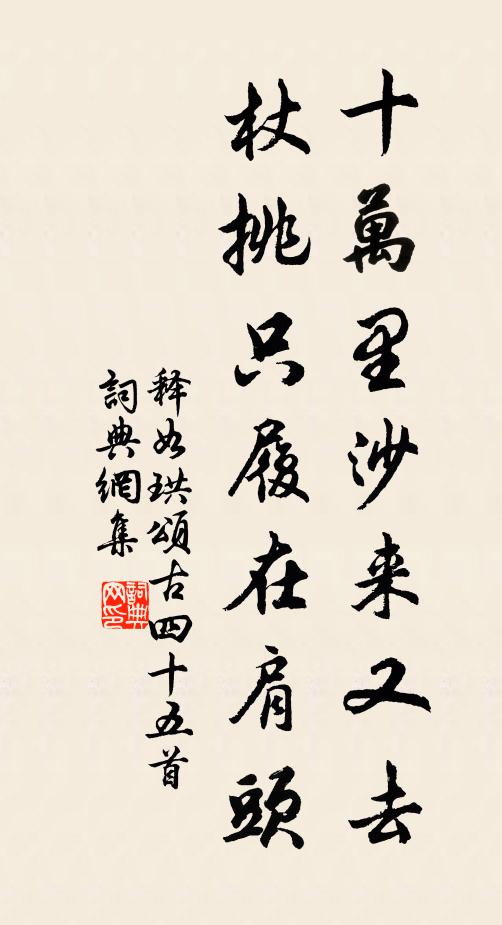 十萬里沙来又去
杖挑只履在肩頭
释如珙頌古四十五首
詞典網集
詞典
网印